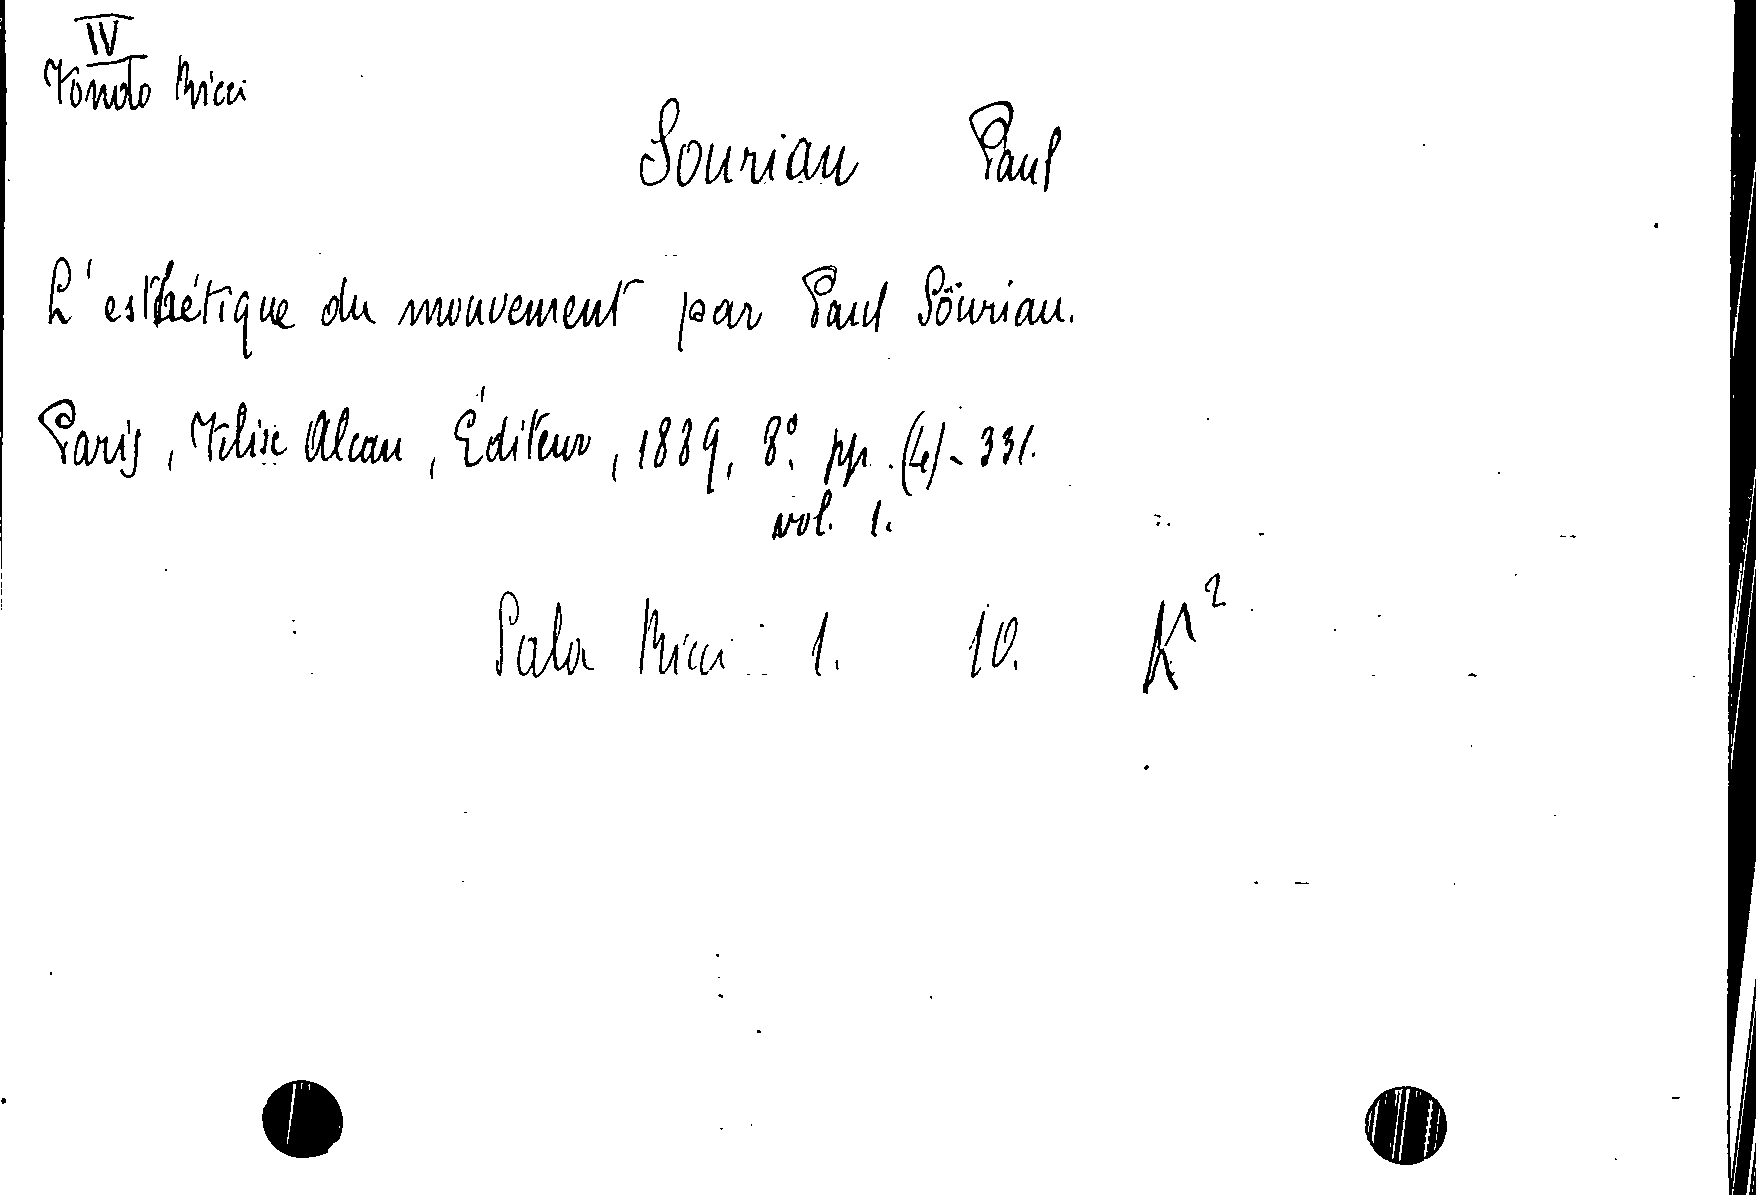 IV
Fondo Ricci
Souriau Paul
L'esthétique du mouvement par Paul Souriau.
Paris, Félix Alcan, Éditeur, 1889, 8º. pp. (4)-331.
vol. 1.
Sala Ricci 1. 10. K²